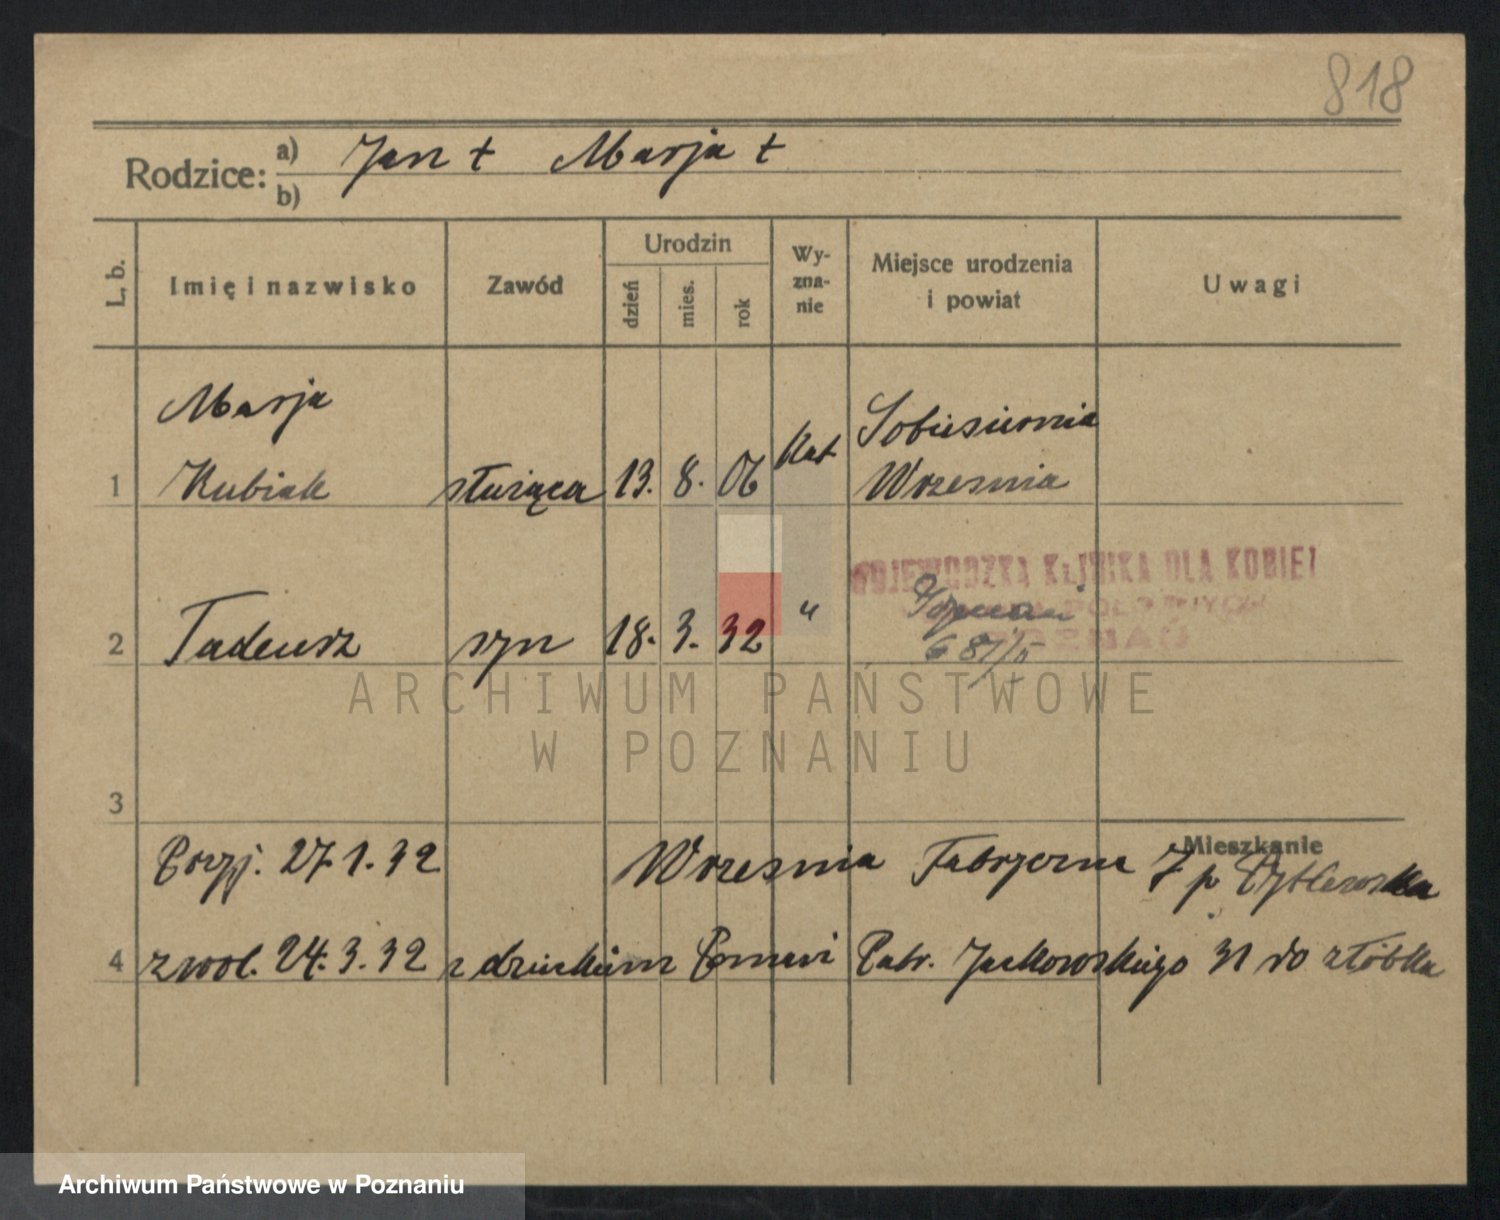 818
Rodzice: a) Jan † Marja †
b)
L. b. Imię i nazwisko Zawód Urodzin dzień mies. rok Wy-zna-nie Miejsce urodzenia i powiat Uwagi
Marja
1 Kubiak służąca 13. 8. 06 Kat Sobiesiernia
Wrzesnia
WOJEWÓDZKA KLINIKA DLA KOBIET
2 Tadeusz syn 18. 3. 32 " Poznań
POZNAŃ
687/II
ARCHIWUM PAŃSTWOWE
W POZNANIU
3
Mieszkanie
Przyj. 27.1.32 Wrzesnia Fabryczna 7 p
4 zwol. 24.3.32 z dzieckiem Patr. Jackowskiego 31 do żłóbka
Archiwum Państwowe w Poznaniu